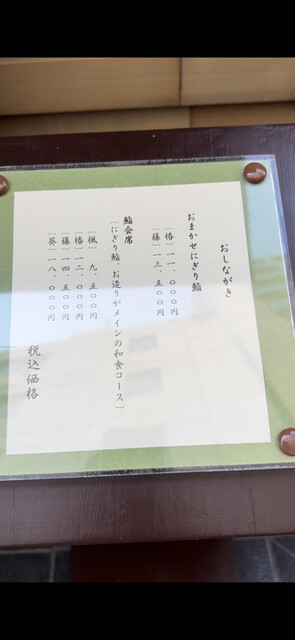 おしながき
おまかせにぎり鮨
〔椿〕一一、〇〇〇円
〔藤〕一三、五〇〇円
鮨会席
〔にぎり鮨、お造りがメインの和食コース〕
〔楓〕九、五〇〇円
〔椿〕一二、〇〇〇円
〔藤〕一四、五〇〇円
〔葵〕一八、〇〇〇円
税込価格